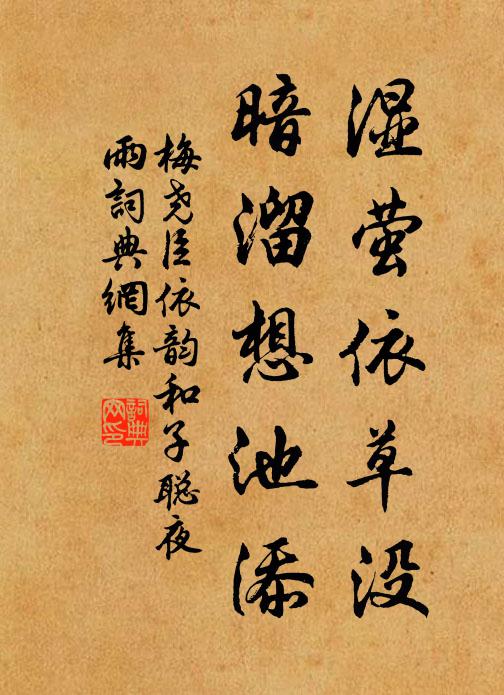 湿萤依草没
暗溜想池添
梅尧臣依韵和子聪夜
雨詞典網集
詞典
网印